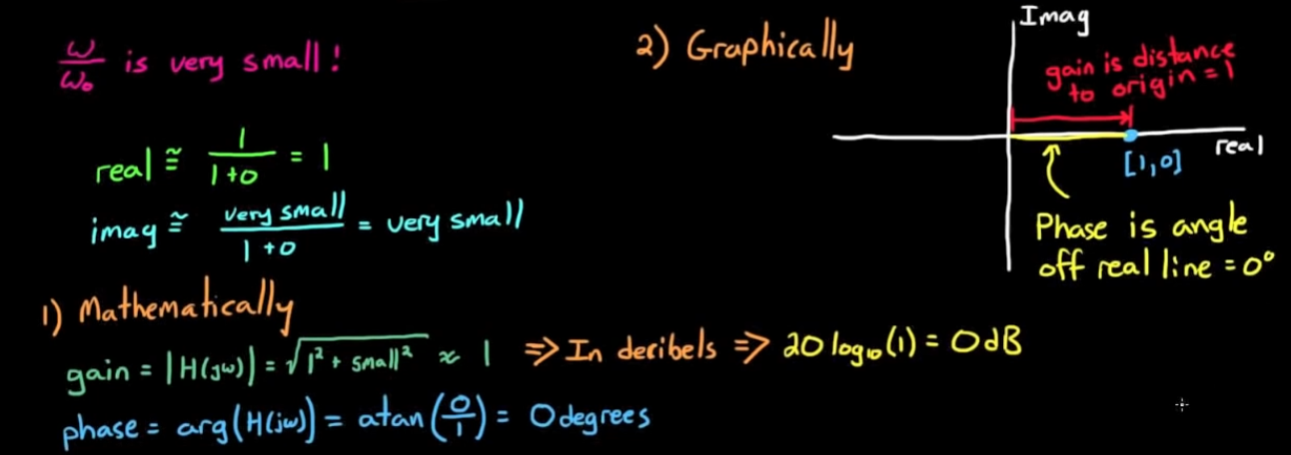 ω/ω₀ is very small!
real ≅ 1/(1+0) = 1
imag ≅ very small/(1+0) = very small
1) Mathematically
gain = |H(jω)| = √(1² + small²) ≈ 1 ⇒ In decibels ⇒ 20 log₁₀(1) = 0dB
phase = arg(H(jω)) = atan(0/1) = 0 degrees
2) Graphically
Imag
gain is distance
to origin = 1
real
[1,0]
Phase is angle
off real line = 0°